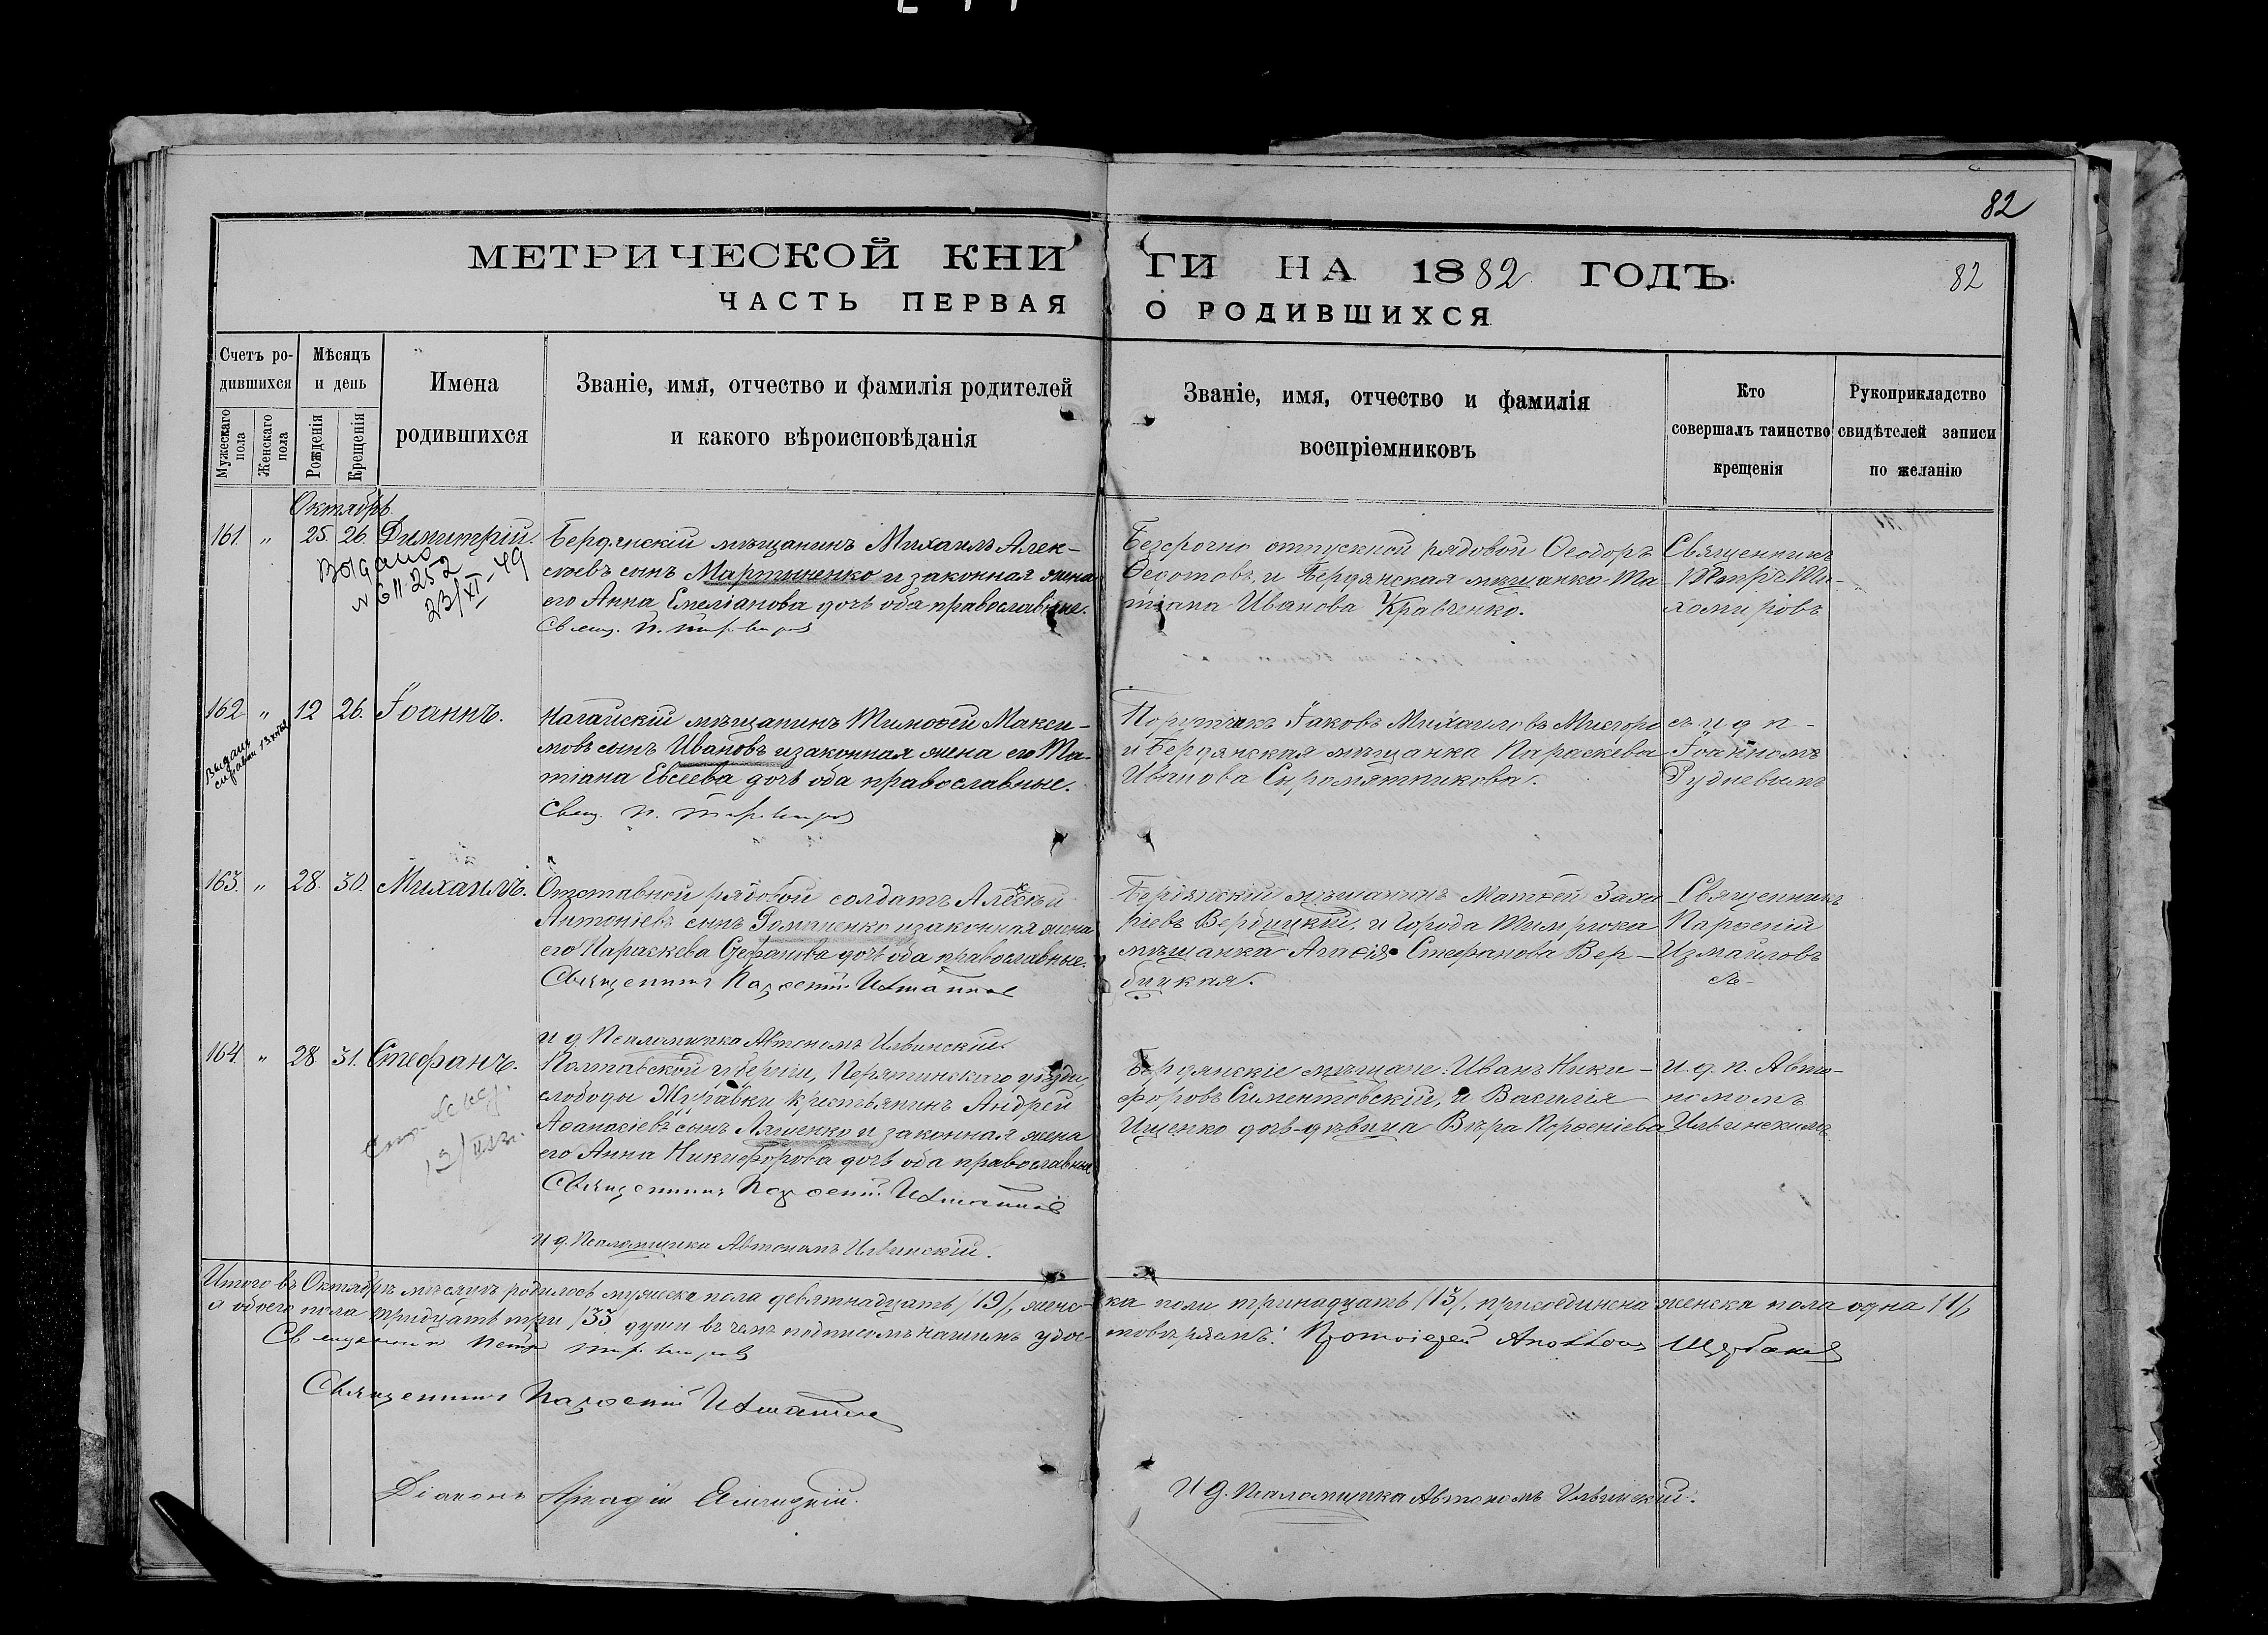 82
МЕТРИЧЕСКОЙ КНИГИ НА 1882 ГОДЪ.
82
ЧАСТЬ ПЕРВАЯ О РОДИВШИХСЯ
Счетъ родившихся
Мужескаго пола
Женскаго пола
Мѣсяцъ и день
Рожденія
Крещенія
Имена родившихся
Званіе, имя, отчество и фамилія родителей
и какого вѣроисповѣданія
Званіе, имя, отчество и фамилія
воспріемниковъ
Кто
совершалъ таинство
крещенія
Рукоприкладство
свидѣтелей записи
по желанію
Октябрь
161. " 25. 26. Димитрій.
Выдано
N 611252
23/XI-49
Бердянскій мѣщанинъ Михаилъ Алек-
сѣевъ сынъ Мартиненко и законная жена
его Анна Емеліанова дочь оба православные.
Свящ. П. Тихомировъ
Безсрочно отпускной рядовой Ѳеодоръ
Ѳедотовъ и Бердянская мѣщанка Та-
тіана Иванова Кравченко.
Священникъ
Петръ Ти-
хомировъ
162 " 12 26. Іоаннъ.
Выдана
справка
Ногайскій мѣщанинъ Тимоѳей Макси-
мовъ сынъ Ивановъ и законная жена его Та-
тіана Евсеева дочь оба православные.
Свящ. П. Тихомировъ
Поручикъ Іаковъ Михаиловъ
и Бердянская мѣщанка Параскева
Иванова Сыромятникова.
съ и д п
Іоанномъ
Рудневымъ
163. " 28. 30. Михаилъ.
Отставной рядовой солдатъ Алексѣй
Антоніевъ сынъ Доманенко и законная жена
его Параскева Стефанова дочь оба православные.
Священникъ Парѳеній Измаиловъ
и д. Псаломщика Автономъ Ильинскій.
Бердянскій мѣщанинъ Матѳей Заха-
ріевъ Вербицкій, и города Темрюка
мѣщанка Агаѳія Стефанова Вер-
бицкая.
Священникъ
Парѳеній
Измаиловъ
съ
164. " 28 31. Стефанъ.
Полтавской губерніи, Пирятинскаго уѣзда,
слободы Журавки крестьянинъ Андрей
Аѳанасіевъ сынъ Ляшенко и законная жена
его Анна Никифорова дочь оба православные
Священникъ Парѳеній Измаиловъ
и д. Псаломщика Автономъ Ильинскій.
Бердянскіе мѣщане: Иванъ Ники-
форовъ Симентовскій, и Василія
Ищенко дочь-дѣвица Вѣра Парѳеніева
и. д. п. Авто-
номомъ
Ильинскимъ
Итого въ Октябрѣ мѣсяцѣ родилось мужеска пола девятнадцать /19/, женс-ка пола тринадцать /13/, присоединена женска пола одна /1/,
а обоего пола тридцать три /33/ души въ чемъ подписомъ нашимъ удос-товѣряемъ: Протоіерей Аполлонъ Щербаковъ
Священникъ Петръ Тихомировъ
Священникъ Парѳеній Измаиловъ
Діаконъ Аркадій
И д. Псаломщика Автономъ Ильинскій.